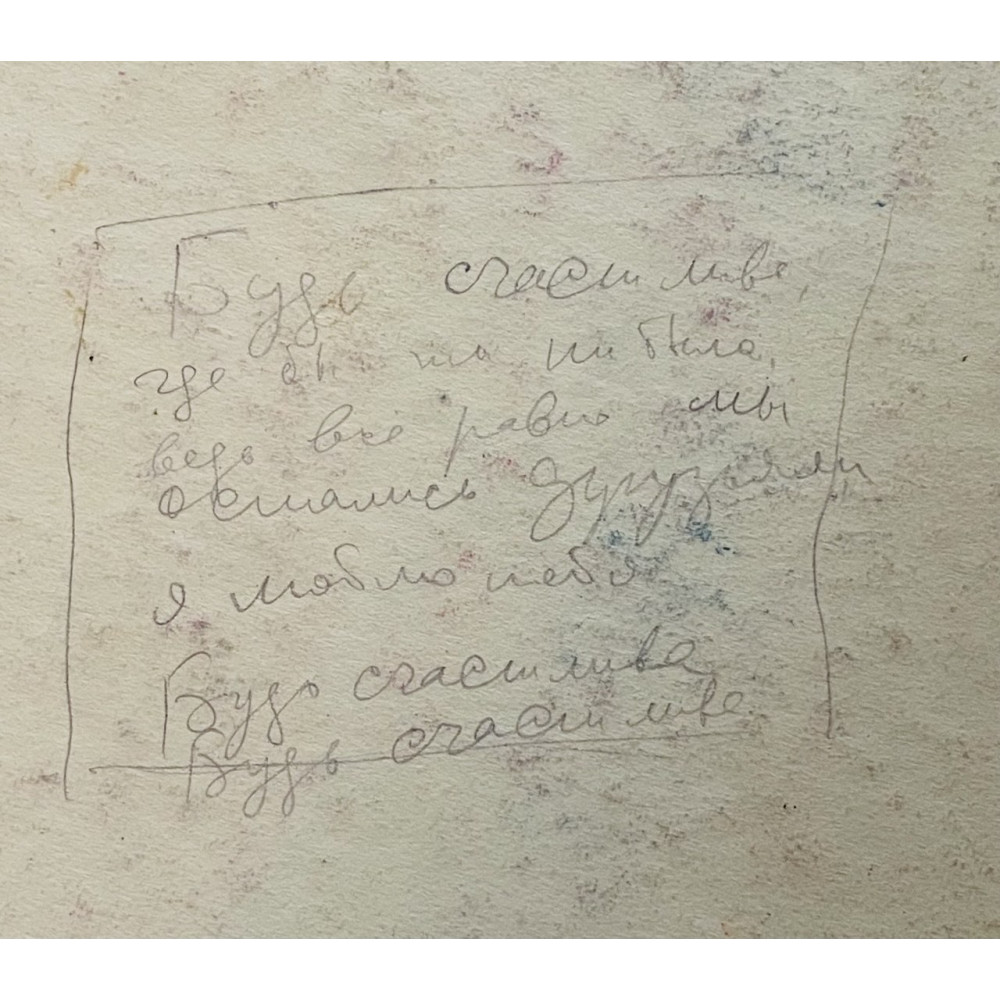 Будь счастлива,
где бы ты ни была,
ведь все равно мы
остались друзьями
я люблю тебя
Будь счастлива
Будь счастлива